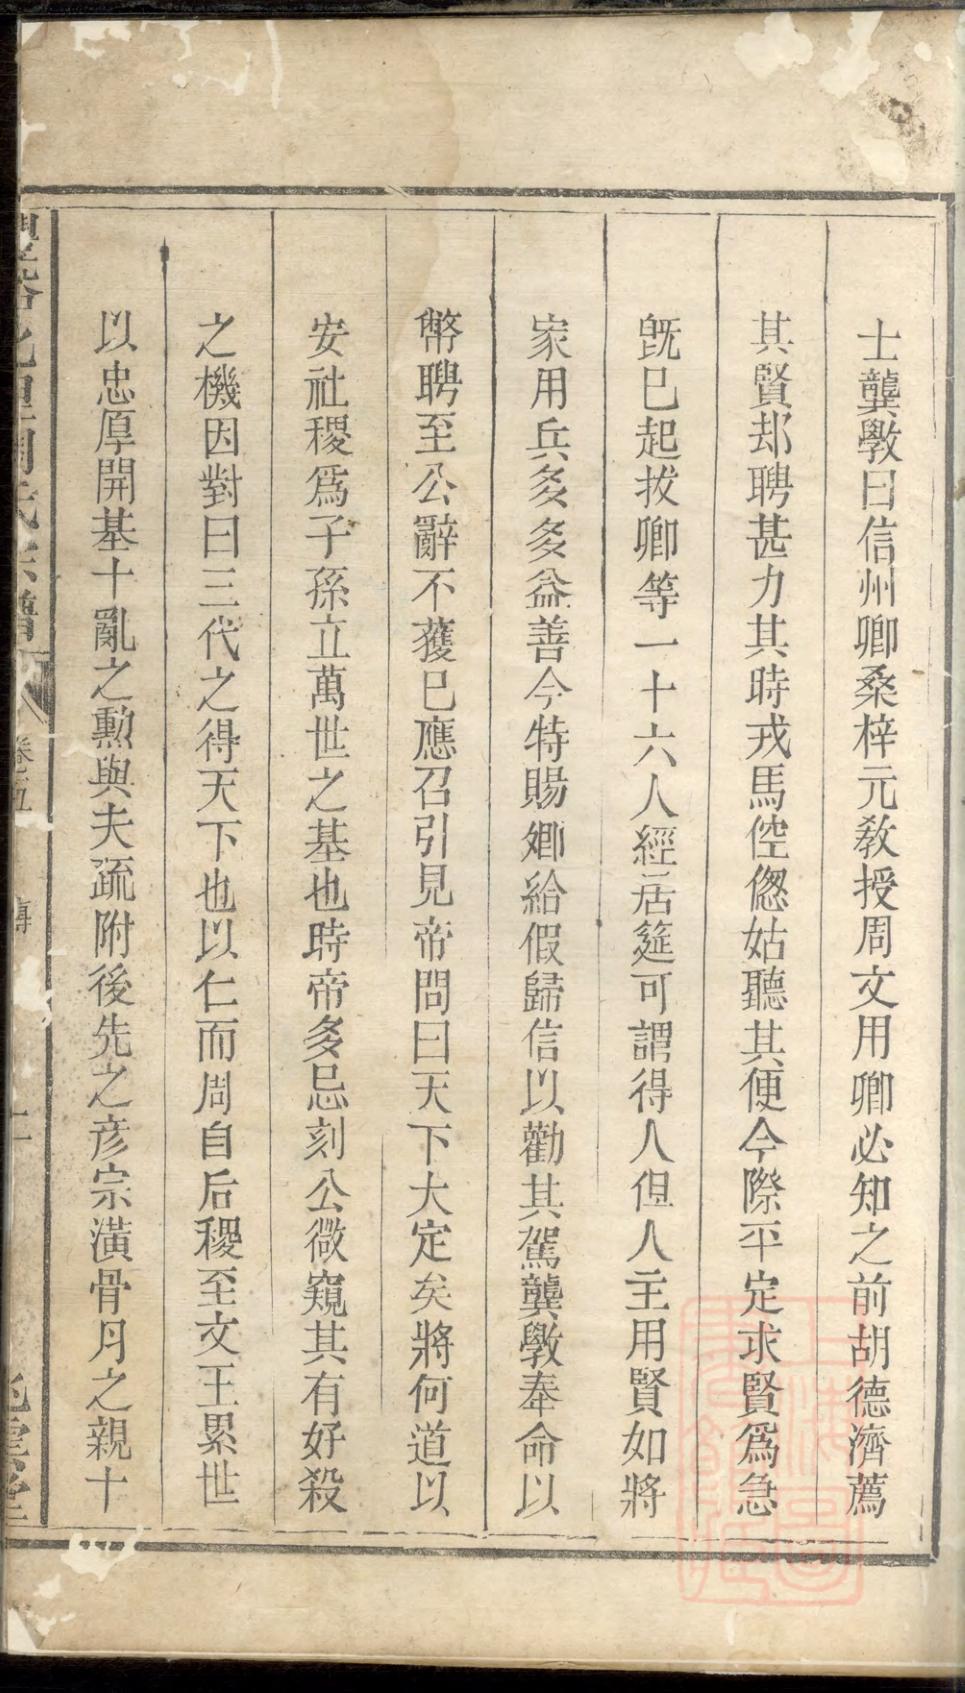 士龔斆曰信州卿桑梓元教授周文用卿必知之前胡德濟薦
其賢却聘甚力其時戎馬倥傯姑聽其便今際平定求賢爲急
旣已起拔卿等一十六人經居筵可謂得人但人主用賢如將
家用兵多多益善今特賜卿給假歸信以勸其駕龔斆奉命以
幣聘至公辭不獲已應召引見帝問曰天下大定矣將何道以
安社稷爲子孫立萬世之基也時帝多忌刻公微窺其有好殺
之機因對曰三代之得天下也以仁而周自后稷至文王累世
以忠厚開基十亂之勲與夫疏附後先之彦宗潢骨月之親十
周氏宗譜
卷五
傳